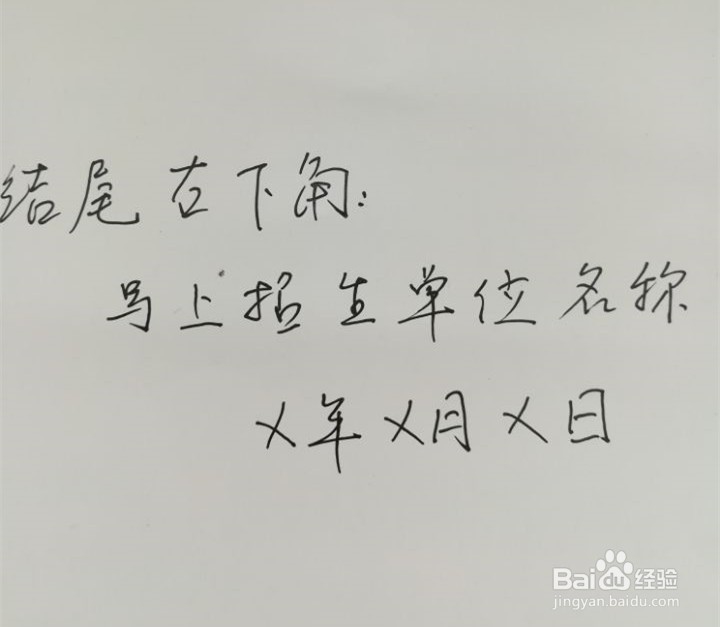 结尾右下角:
写上招生单位名称
X年X月X日
Baidu经验
jingyan.baidu.com